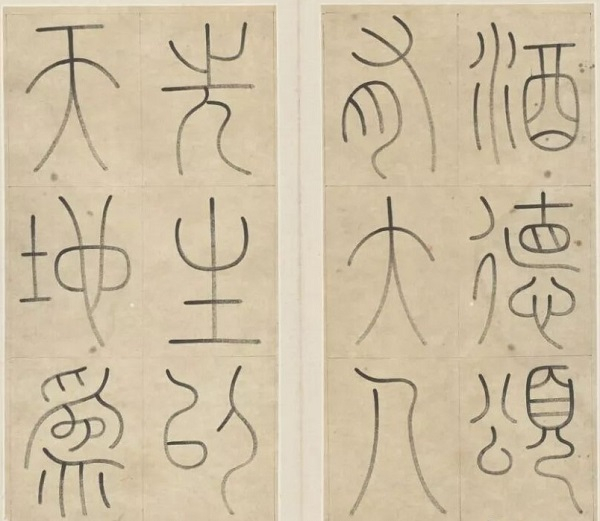 酒德頌
有大人
先生以
天地為